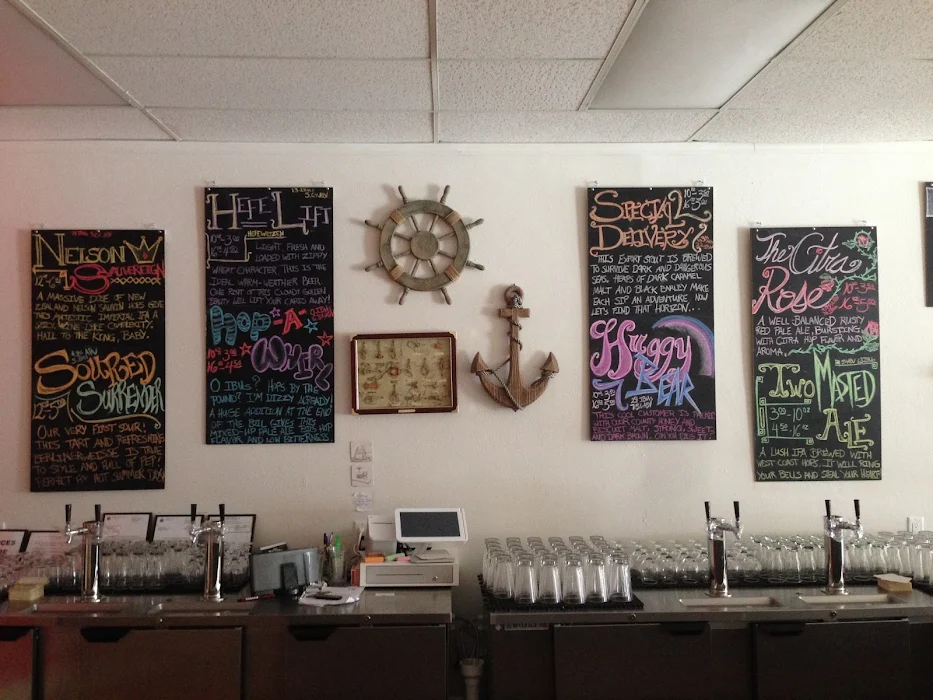 NELSON
SAUVEREIGN
12-6
A MASSIVE DOSE OF NEW
ZEALAND NELSON SAUVIN HOPS GIVE
THIS IMPERIAL IPA A
WINE LIKE COMPLEXITY.
HAIL TO THE KING, BABY.
SOURCED
SURRENDER
12-5
OUR VERY FIRST SOUR!
THIS TART AND REFRESHING
BERLINERWEISSE IS TRUE
TO STYLE AND FULL OF PEP.
PERFECT FOR HOT SUMMER DAY
HEFE LIFT
HEFEWEIZEN
LIGHT, FRESH AND
LOADED WITH ZIPPY
WHEAT CHARACTER THIS IS THE
IDEAL WARM-WEATHER BEER.
ONE PINT OF THIS CLOUDY GOLDEN
BEAUTY WILL LIFT YOUR CARGO AWAY!
HOP-A-
WHIRL
O IBUS? HOPS BY THE
POUND? I'M DIZZY ALREADY!
A HUGE ADDITION AT THE END
OF THE BOIL GIVES THIS
MIXED-HOP PALE ALE BIG HOP
FLAVOR AND LOW BITTERNESS
SPECIAL
DELIVERY
10-3.50
16-5
THIS EXPORT STOUT IS BREWED
TO SURVIVE DARK AND DANGEROUS
SEAS. HEAPS OF DARK CARAMEL
MALT AND BLACK BARLEY MAKE
EACH SIP AN ADVENTURE. NOW
LET'S FIND THAT HORIZON...
HUGGY
BEAR
THIS COOL CUSTOMER IS
WITH DEER COUNTY HONEY AND
BISCUIT MALT, STRONG, SWEET
AND DARK BROWN.
The Citra
Rose
10-3.50
16-5
A WELL BALANCED RUSTY
RED PALE ALE, BURSTING
WITH CITRA HOP FLAVOR AND
AROMA.
TWO MASTED
ALE
A LUSH IPA BREWED WITH
WEST COAST HOPS. IT WILL RING
YOUR BELLS AND STEAL YOUR HEART